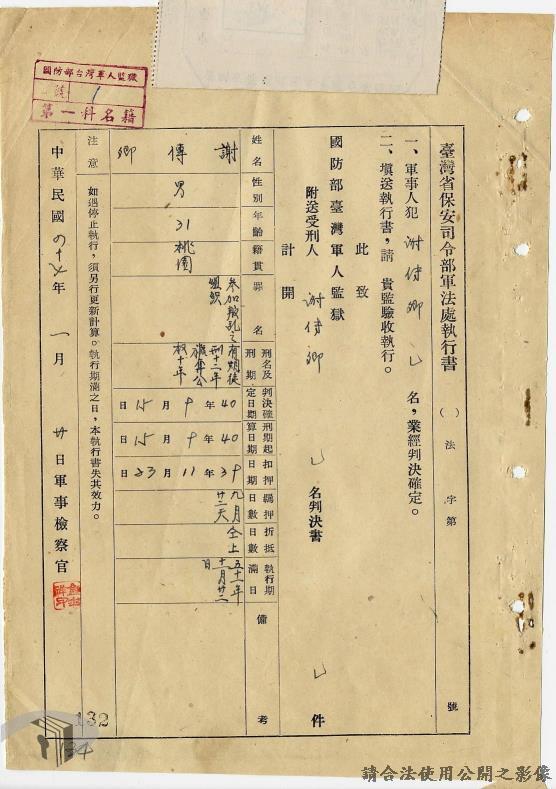 國防部台灣軍人監獄
第一科名籍
臺灣省保安司令部軍法處執行書
( )法字第 號
一、軍事人犯 謝傳卿 乙 名,業經判決確定。
二、填送執行書,請 貴監驗收執行。
此致
國防部臺灣軍人監獄
附送受刑人 謝傳卿 乙 名判決書 乙 件
計開
姓名 謝傳卿
性別 男
年齡 31
籍貫 桃園
罪名 參加叛亂之組織
刑名及刑期 有期徒刑十二年 褫奪公权十年
判決確定日期 40年9月15日
刑期起算日期 40年9月15日
扣押日期 39年11月23日
羈押日數 九月廿二天
折抵日數 仝上
執行期滿日 五十一年十一月廿二日
備考
注意 如遇停止執行,須另行更新計算。執行期滿之日,本執行書失其效力。
中華民國 年 一月 廿日軍事檢察官
132
請合法使用公開之影像